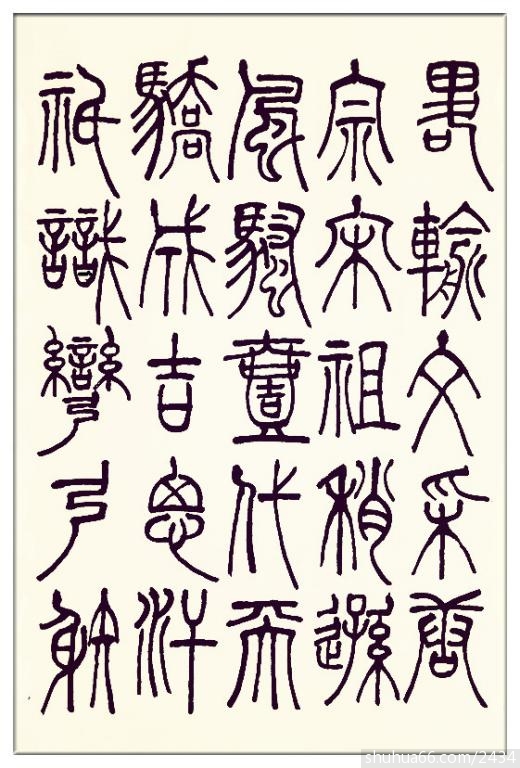 畧輸文采唐
宗宋祖稍遜
風騷壹代天
驕成吉思汗
祇識彎弓射
shuhua66.com/2434